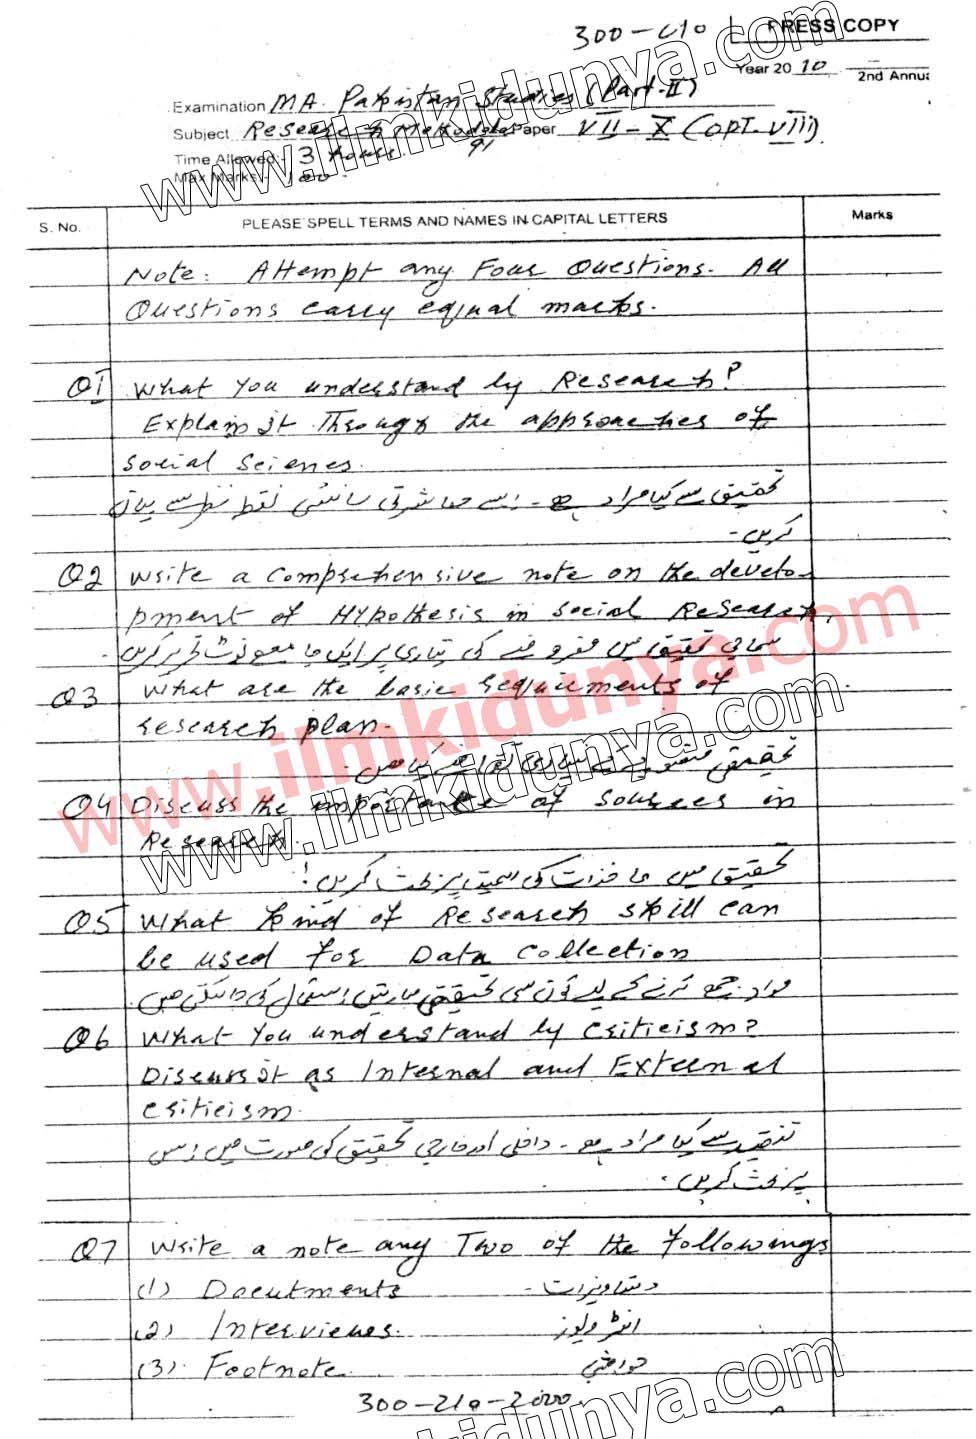 300-210
PRESS COPY
Year 2010 2nd Annual
Examination MA. Pakistan Studies (Part-II)
Subject Research Methodology Paper VII-X (OPT. VIII).
Time Allowed:- 3 hours.
Max Marks:- 100.
S. No. PLEASE SPELL TERMS AND NAMES IN CAPITAL LETTERS Marks
Note: Attempt any Four Questions. All
Questions carry equal marks.
Q1 What You understand by Research?
Explain it Through the approaches of
social sciences.
تحقیق سے کیا مراد ہے۔ اسے معاشرتی سائنسی نقطہ نظر سے بیان
کریں۔
Q2 Write a comprehensive note on the develo-
pment of Hypothesis in social Research.
سماجی تحقیق میں مفروضے کی تیاری پر ایک جامع نوٹ تحریر کریں۔
Q3 What are the basic requirements of
research plan.
تحقیقی منصوبے کے بنیادی لوازمے کیا ہیں۔
Q4 Discuss the importance of sources in
Research.
تحقیق میں ماخذات کی اہمیت پر بحث کریں!
Q5 What kind of Research skill can
be used for Data collection
مواد جمع کرنے کے لیے کون سی تحقیقی مہارتیں استعمال کی جا سکتی ہیں
Q6 What You understand by criticism?
Discuss it as Internal and External
criticism.
تنقید سے کیا مراد ہے۔ داخلی اور خارجی تحقیق کی صورت میں اس
پر بحث کریں۔
Q7 Write a note any Two of the followings
(1) Docutments دستاویزات۔
(2) Interviews. انٹرویوز
(3). Footnote. حواشی
300-210-2000.
www.ilmkidunya.com
www.ilmkidunya.com
www.ilmkidunya.com
www.ilmkidunya.com